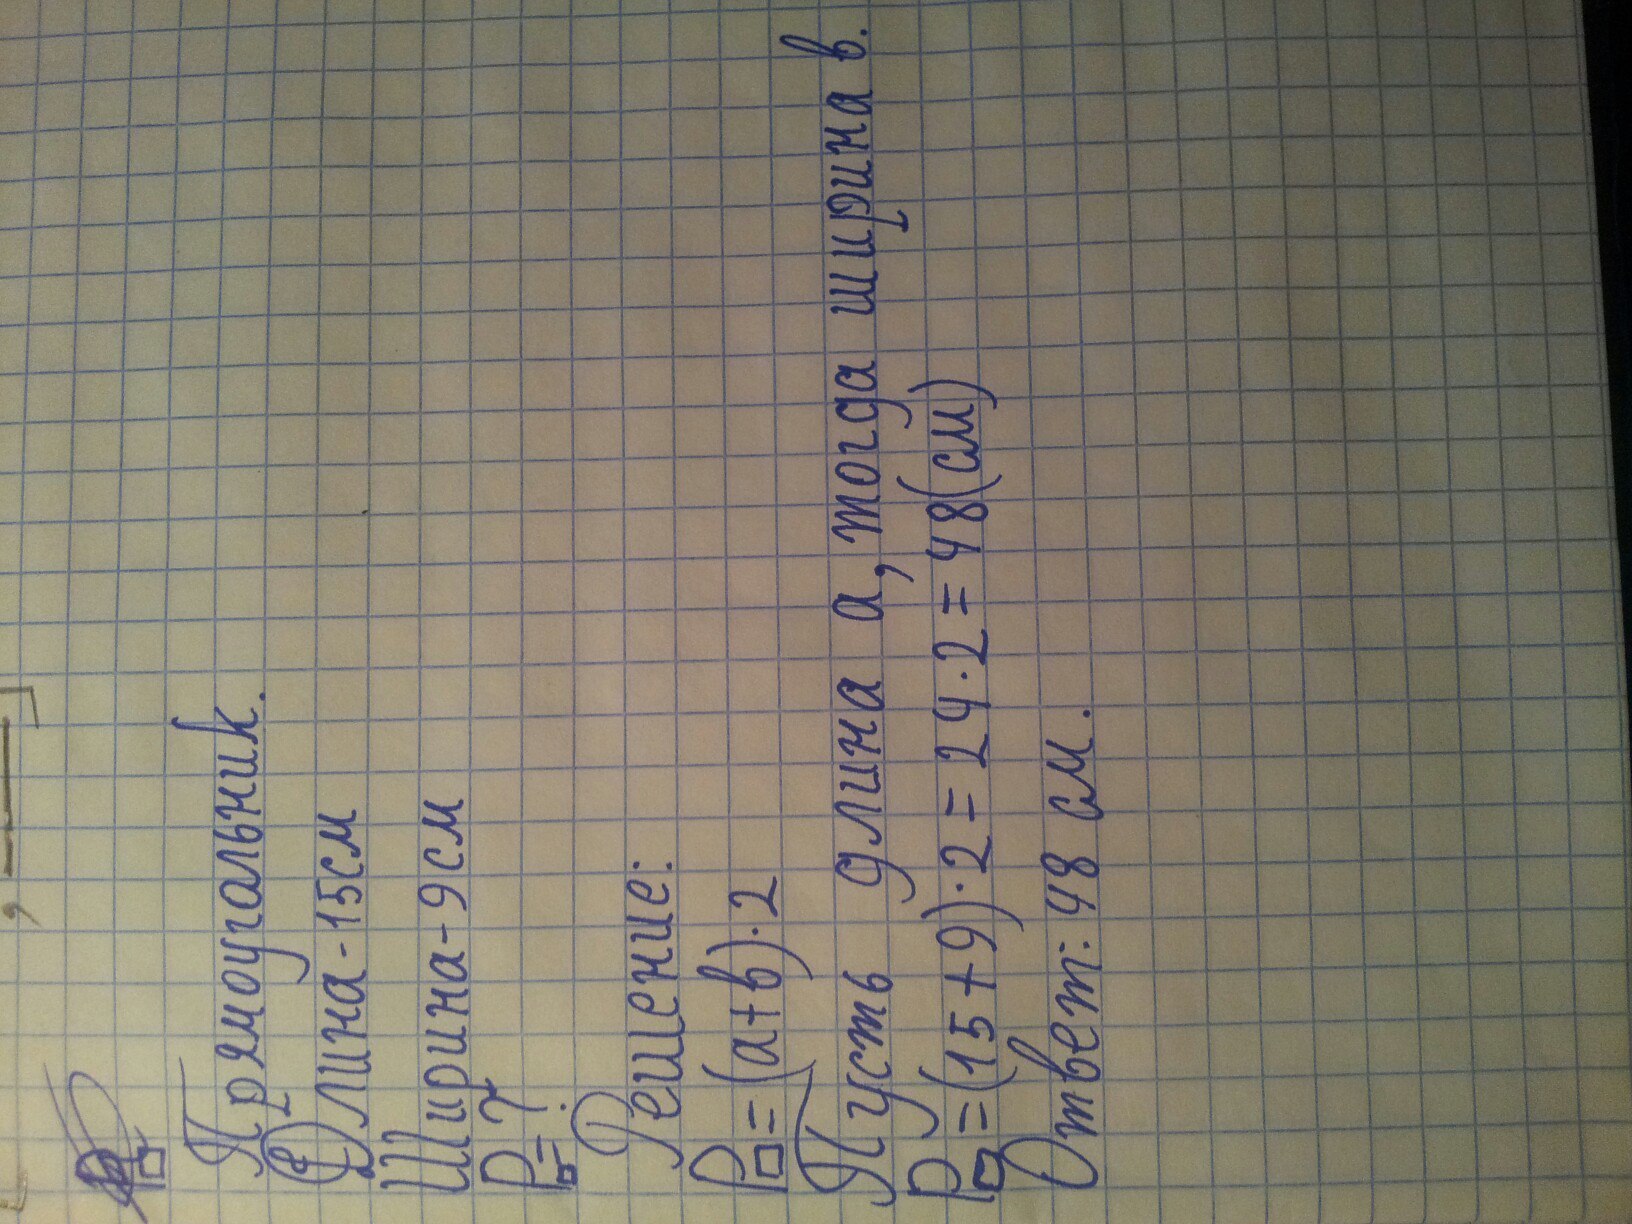 Прямоугольник.
Длина-15см
Ширина-9см
P▭=?
Решение:
P▭=(а+в)·2
Пусть длина а, тогда ширина в.
P▭=(15+9)·2=24·2=48(см)
Ответ: 48 см.